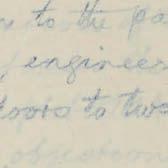 to the pa
enginee
doors to two